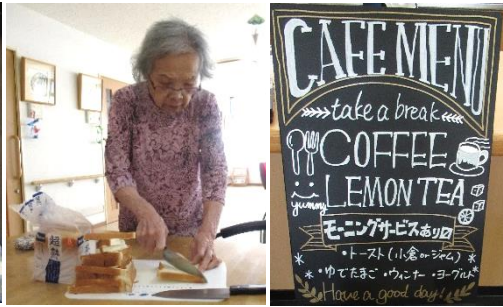 超熟
CAFE MENU
take a break
COFFEE
yummy
LEMON TEA
モーニングサービスあり〼
・トースト(小倉orジャム)
・ゆでたまご・ウィンナー・ヨーグルト
Have a good day!